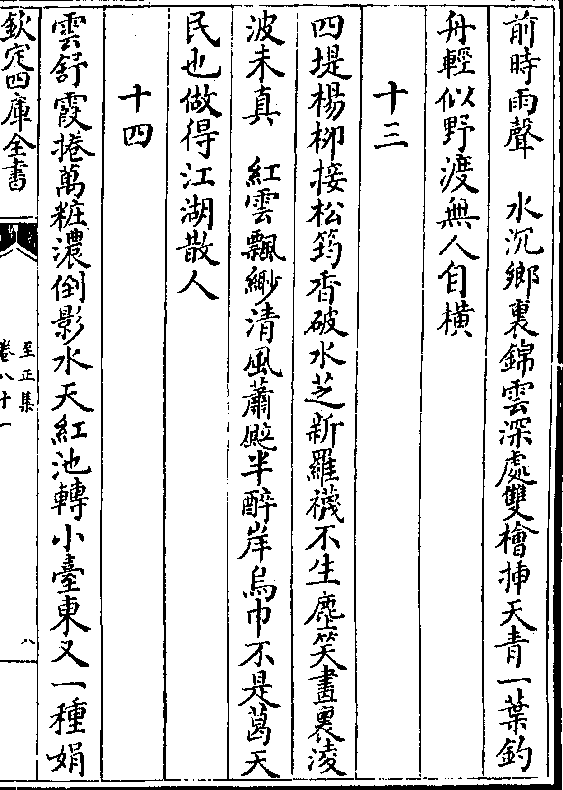 前時雨聲　水沉鄉裏錦雲深處雙檜揷天青一葉釣
舟輕似野渡無人自橫
十三
四堤楊柳接松筠香破水芝新羅襪不生塵笑畫裏淩
波未真　紅雲飄緲清風蕭颼半醉岸烏巾不是葛天
民也做得江湖散人
十四
雲舒霞捲萬粧濃倒影水天紅池轉小臺東又一種娟
欽定四庫全書
至正集
卷八十一
八